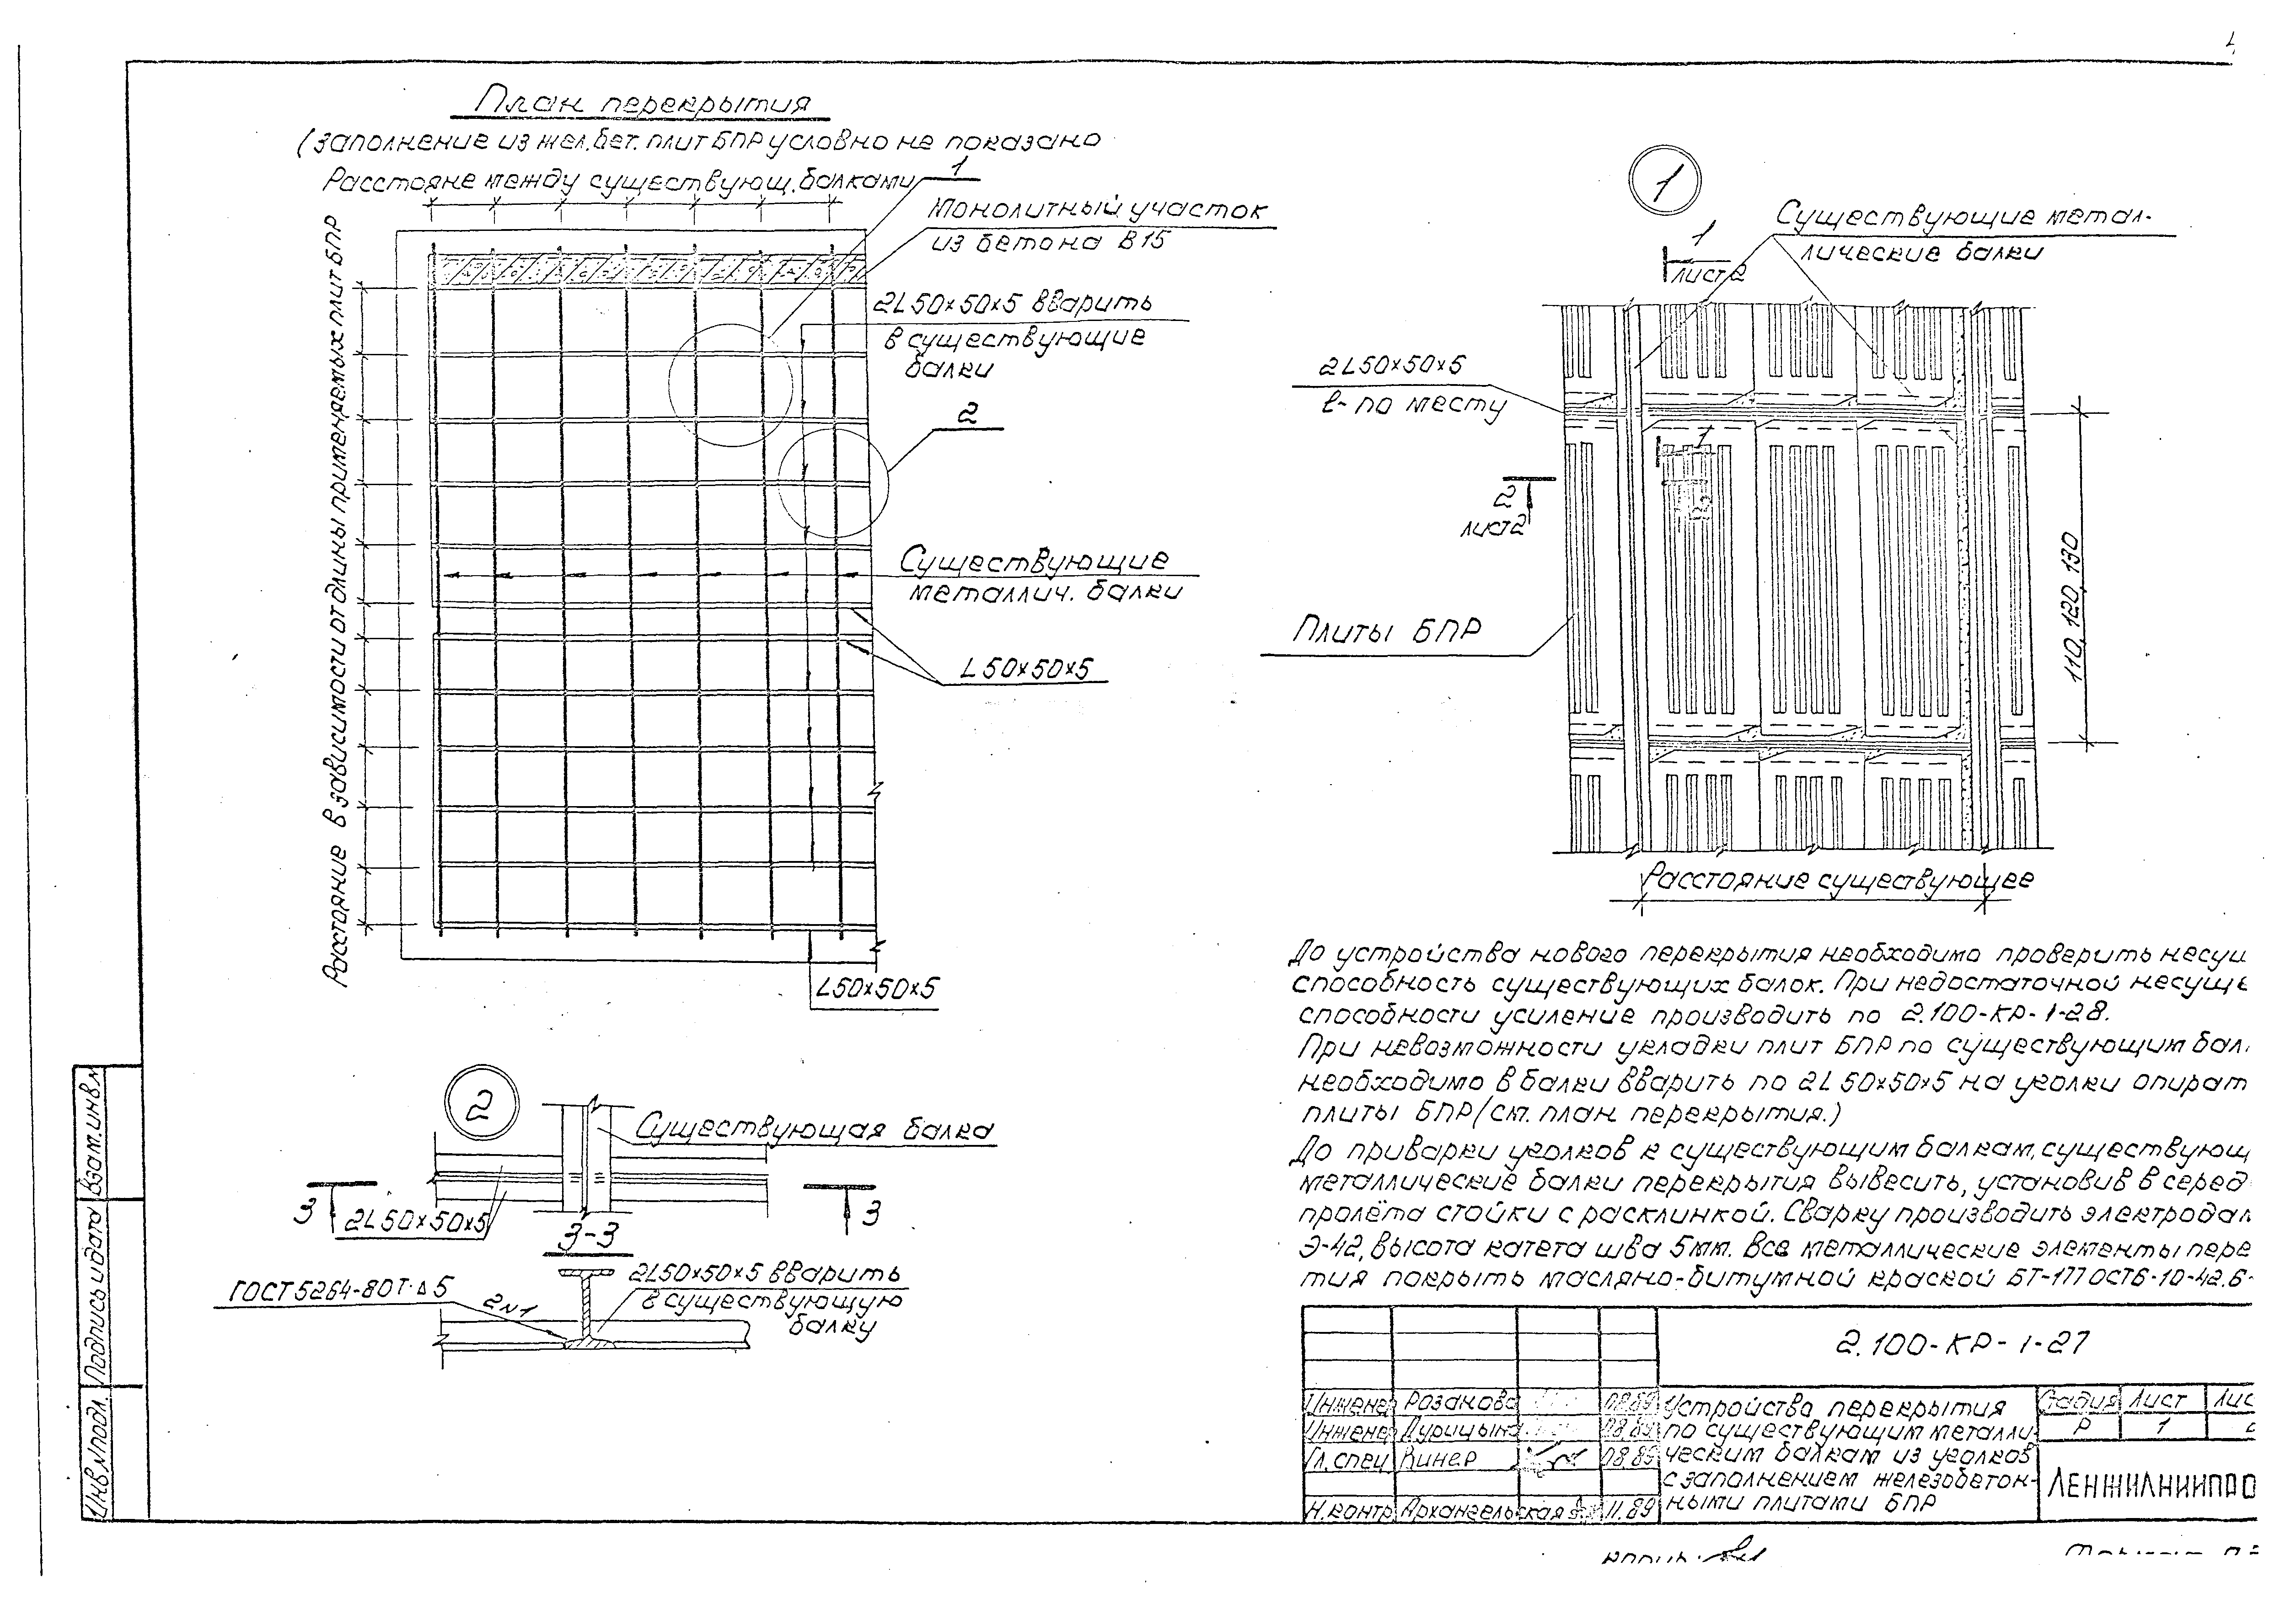 План перекрытия
(заполнение из жел.бет. плит БПР условно не показано
Расстояне между существующ. балками
1
Монолитный участок
из бетона В15
2L50×50×5 вварить
в существующие
балки
2
Расстояние в зависимости от длины применяемых плит БПР
Существующие
металлич. балки
L50×50×5
L50×50×5
1
1
лист2
Существующие метал-
лические балки
2L50×50×5
ℓ-по месту
1
2
лист2
Плиты БПР
110, 120, 130
Расстояние существующее
2
Существующая балка
3
3
2L50×50×5
3-3
ГОСТ 5264-80 Т-Δ5
2N1
2L50×50×5 вварить
в существующую
балку
До устройства нового перекрытия необходимо проверить несущ
способность существующих балок. При недостаточной несуще
способности усиление производить по 2.100-КР-1-28.
При невозможности укладки плит БПР по существующим бал
необходимо в балки вварить по 2L 50×50×5 на уголки опират
плиты БПР (см. план перекрытия.)
До приварки уголков к существующим балкам, существующ
металлические балки перекрытия вывесить, установив в серед
пролёта стойки с расклинкой. Сварку производить электродам
Э-42, высота катета шва 5мм. Все металлические элементы пере
тия покрыть масляно-битумной краской БТ-177 ОСТ6-10-42.6-
2.100-КР-1-27
Инженер Розанова 08.89
Инженер Дурицына 08.89
Гл. спец Винер 08.89
Н.контр Архангельская 11.89
Устройство перекрытия
по существующим металли-
ческим балкам из уголков
с заполнением железобетон-
ными плитами БПР
Стадия Лист Лис
Р 1
ЛЕНЖИЛНИИПРО
Взам.инв.N
Подпись и дата
Инв.N подл.